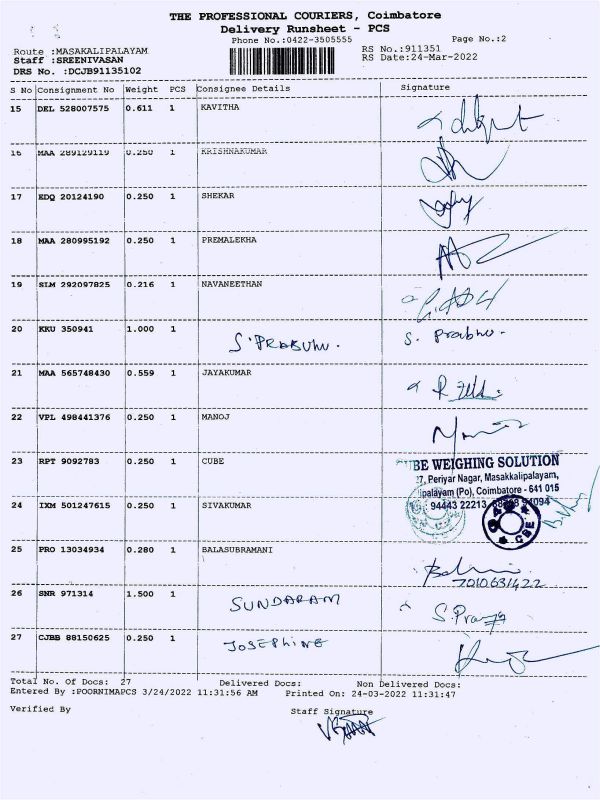 THE PROFESSIONAL COURIERS, Coimbatore
Delivery Runsheet - PCS
Phone No.:0422-3505555
Page No.:2
Route :MASAKALIPALAYAM
RS No.:911351
Staff :SREENIVASAN
RS Date:24-Mar-2022
DRS No. :DCJB91135102
S No Consignment No Weight PCS Consignee Details Signature
15 DEL 528007575 0.611 1 KAVITHA
16 MAA 289129119 0.250 1 KRISHNAKUMAR
17 EDQ 20124190 0.250 1 SHEKAR
18 MAA 280995192 0.250 1 PREMALEKHA
19 SLM 292097825 0.216 1 NAVANEETHAN
20 KKU 350941 1.000 1 S. PRABHU. S. Prabhu.
21 MAA 565748430 0.559 1 JAYAKUMAR
22 VPL 498441376 0.250 1 MANOJ
23 RPT 9092783 0.250 1 CUBE
CUBE WEIGHING SOLUTION
27, Periyar Nagar, Masakkalipalayam,
ipalayam (Po), Coimbatore - 641 015
94443 22213, 94094
24 IXM 501247615 0.250 1 SIVAKUMAR
CBE
25 PRO 13034934 0.280 1 BALASUBRAMANI
7010631422
26 SNR 971314 1.500 1 SUNDARAM
27 CJBB 88150625 0.250 1 JOSEPHINE
Total No. Of Docs: 27 Delivered Docs: Non Delivered Docs:
Entered By :POORNIMAPCS 3/24/2022 11:31:56 AM Printed On: 24-03-2022 11:31:47
Verified By Staff Signature